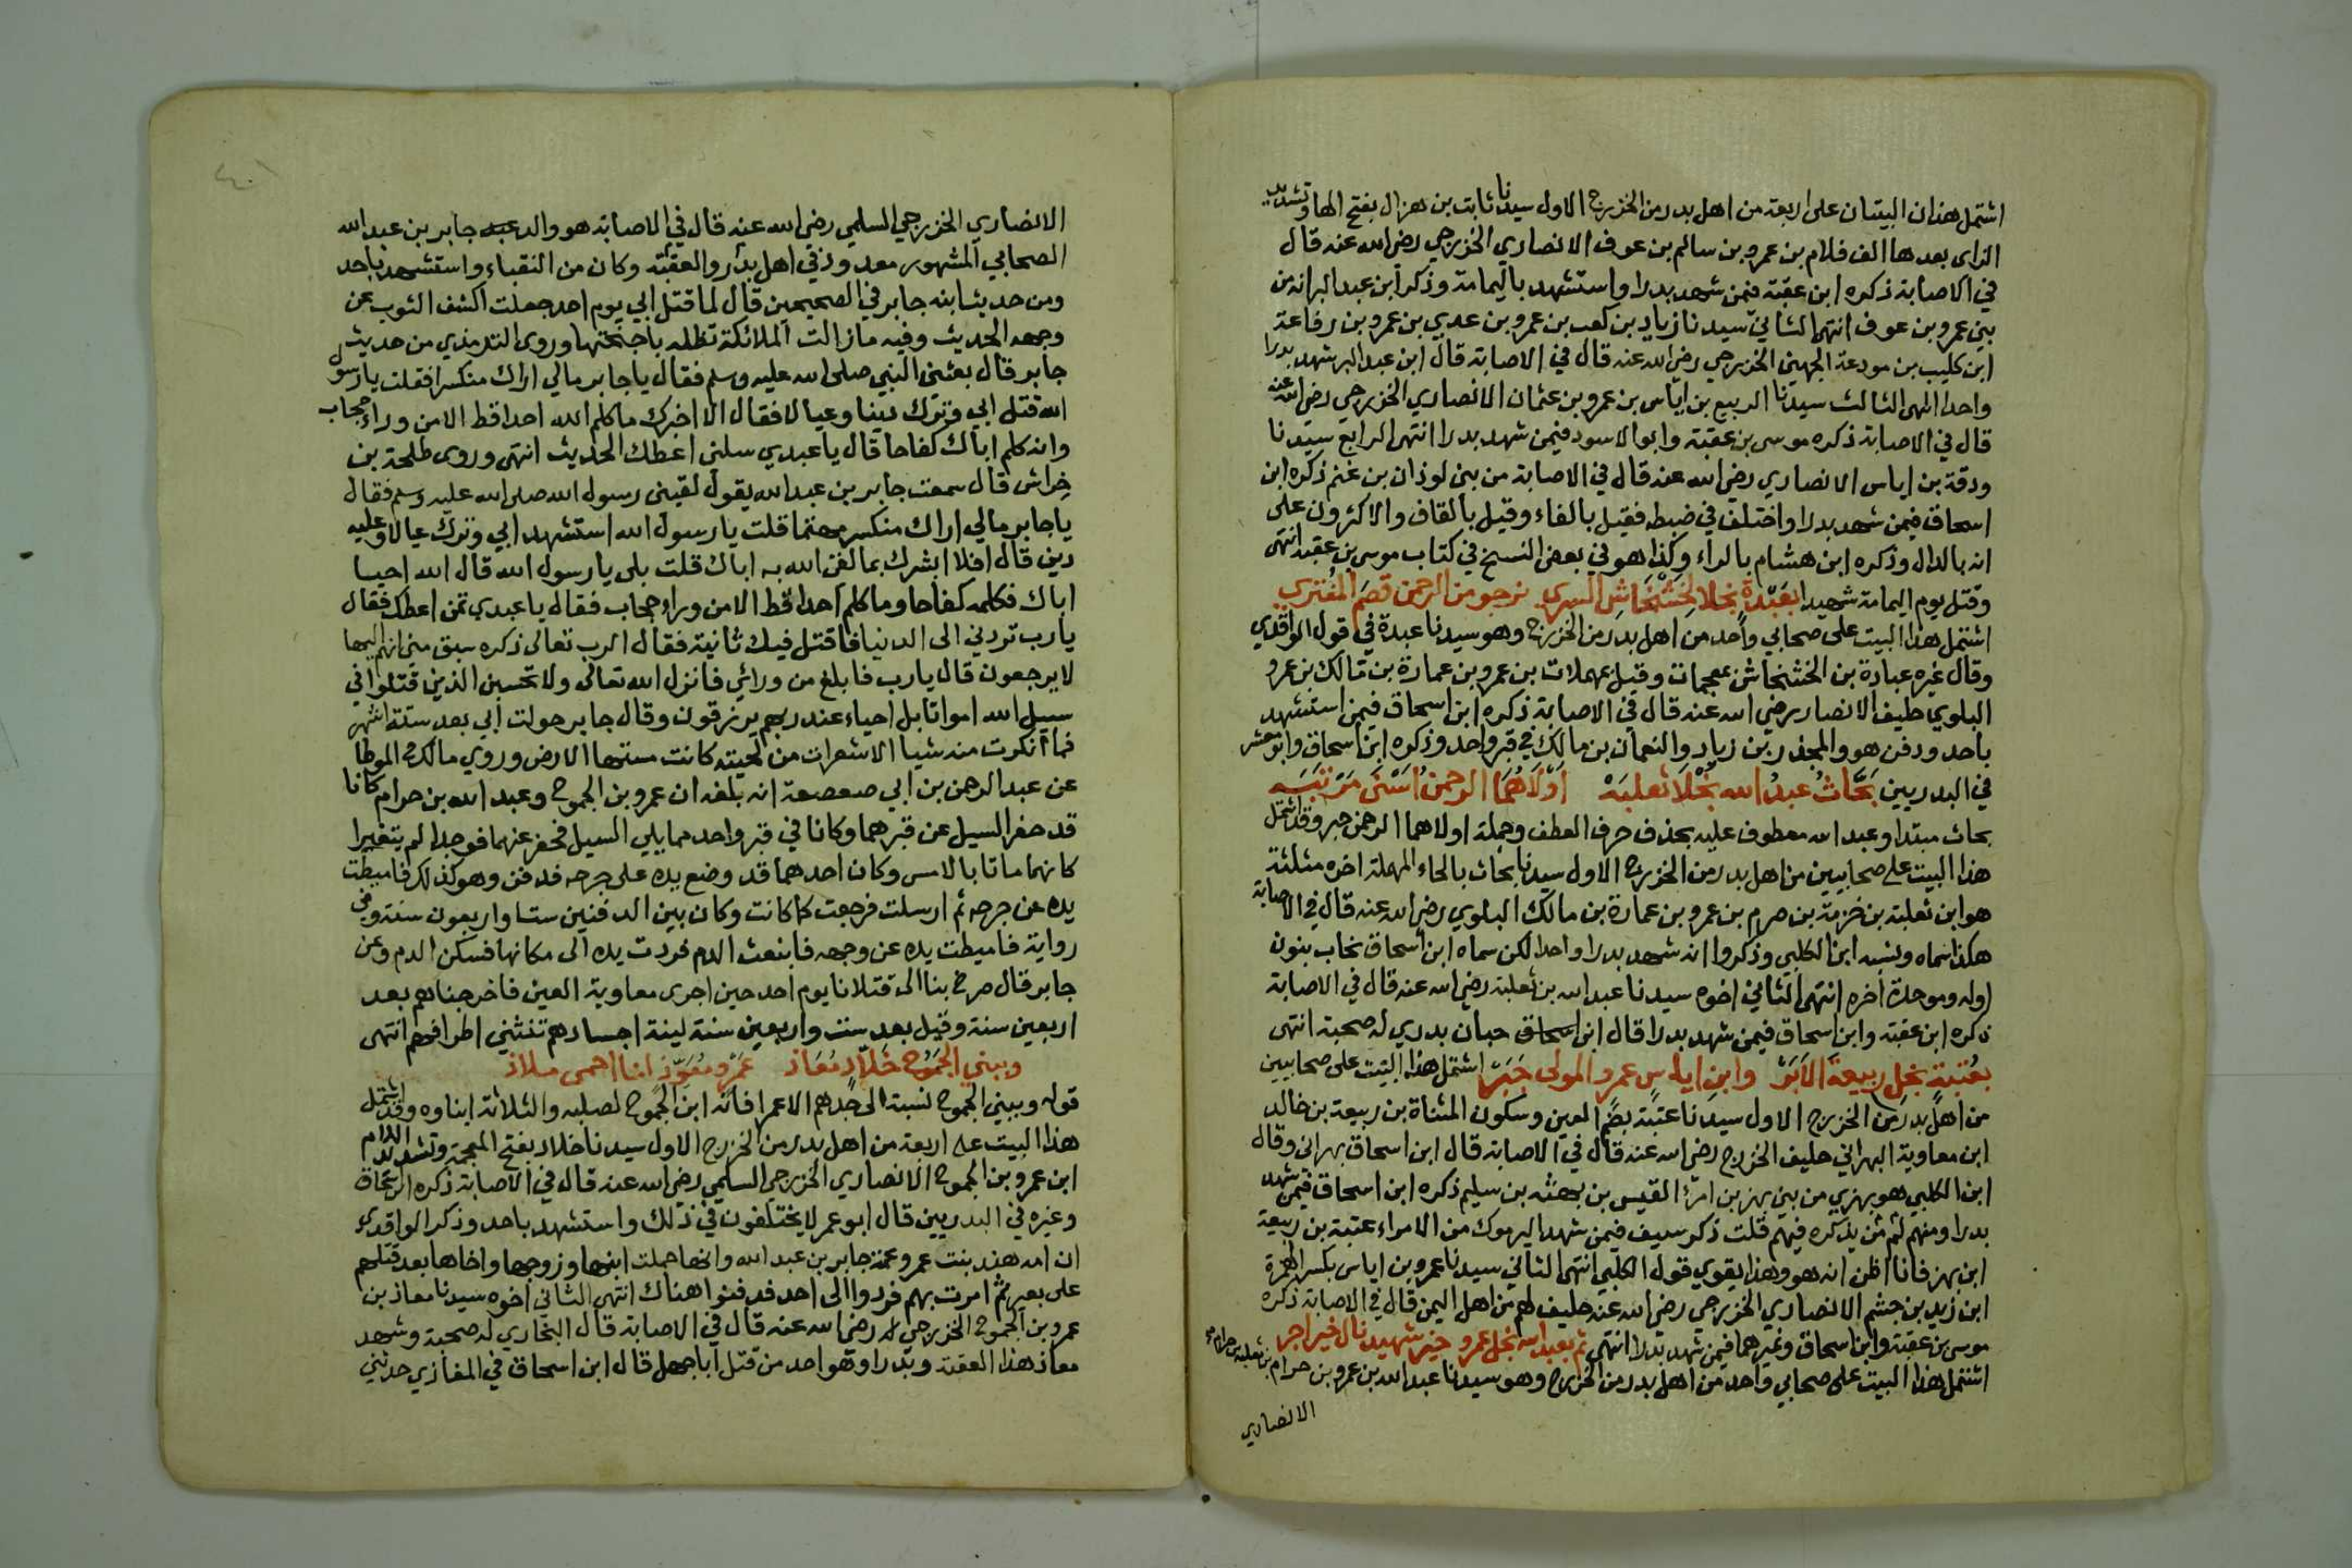 اشتمل هذان البيتان على اربعة من اهل بدر من الخزرج الاول سيدنا ثابت بن هزال بفتح الها وتشديد
الزاى بعدها الف فلام بن عمرو بن سالم بن عوف الانصاري الخزرجي رضي الله عنه قال
في الاصابة ذكره ابن عقبة فيمن شهد بدرا واستشهد باليمامة وذكر ابن عبد البر انه من
بني عمرو بن عوف انتهى الثاني سيدنا زياد بن كعب بن عمرو بن عدي بن عمرو بن رفاعة
ابن كليب بن مودعة الجهني الخزرجي رضي الله عنه قال في الاصابة قال ابن عبد البر شهد بدرا
واحدا انتهى الثالث سيدنا الربيع بن اياس بن عمرو بن عثمان الانصاري الخزرجي رضي الله عنه
قال في الاصابة ذكره موسى بن عقبة وابو الاسود فيمن شهد بدرا انتهى الرابع سيدنا
ودقة بن اياس الانصاري رضي الله عنه قال في الاصابة من بني لوذان بن غنم ذكره ابن
اسحاق فيمن شهد بدرا واختلف في ضبطه فقيل بالفاء وقيل بالقاف والاكثرون على
انه بالدال وذكره ابن هشام بالراء وكذا هو في بعض النسخ في كتاب موسى بن عقبة انتهى
وقتل يوم اليمامة شهيدا بعبدة نجلا لخشخاش السري نرجو من الرحمن قصم المفتري
اشتمل هذا البيت على صحابي واحد من اهل بدر من الخزرج وهو سيدنا عبدة في قول الواقدي
وقال غيره عبادة بن الخشخاش بمعجمات وقيل بمهملات بن عمرو بن عمارة بن مالك بن عمرو
البلوي حليف الانصار رضي الله عنه قال في الاصابة ذكره ابن اسحاق فيمن استشهد
باحد ودفن هو والمجذر بن زياد والنعمان بن مالك في قبر واحد وذكره ابن اسحاق وابو معشر
في البدريين بحاث عبد الله نجلا ثعلبة اولاهما الرحمن اسنى مرتبه
بحاث مبتدا وعبد الله معطوف عليه بحذف حرف العطف وجملة اولاهما الرحمن خبر وقد اشتمل
هذا البيت على صحابيين من اهل بدر من الخزرج الاول سيدنا بحاث بالحاء المهملة اخره مثلثة
هو ابن ثعلبة بن خزمة بن صرم بن عمرو بن عمارة بن مالك البلوي رضي الله عنه قال في الاصابة
هكذا سماه ونسبه ابن الكلبي وذكروا انه شهد بدرا واحدا لكن سماه ابن اسحاق نحاب بنون
اوله وموحدة اخره انتهى الثاني اخوه سيدنا عبد الله بن ثعلبة رضي الله عنه قال في الاصابة
ذكره ابن عقبة وابن اسحاق فيمن شهد بدرا قال ابن اسحاق حبان بدري له صحبة انتهى
بعتبة نجل ربيعة الابر وابن اياس عمرو المولى خبر اشتمل هذا البيت على صحابيين
من اهل بدر من الخزرج الاول سيدنا عتبة بضم العين وسكون المثناة بن ربيعة بن خالد
ابن معاوية البهراني حليف الخزرج رضي الله عنه قال في الاصابة قال ابن اسحاق بهرانى وقال
ابن الكلبي هو بهزي من بني بهز بن امرئ القيس بن بهثة بن سليم ذكره ابن اسحاق فيمن شهد
بدرا ومنهم من لم يذكره فيهم قلت ذكر سيف فيمن شهد اليرموك من الامراء عتبة بن ربيعة
ابن بهز فانا اظن انه هو وهذا يقوي قول الكلبي انتهى الثاني سيدنا عمرو بن اياس بكسر الهمزة
ابن زيد بن جشم الانصاري الخزرجي رضي الله عنه حليف لهم من اهل اليمن قال في الاصابة ذكره
موسى بن عقبة وابن اسحاق وغيرهما فيمن شهد بدرا انتهى ثم بعبد الله نجل عمرو خير شهيد نال خير اجر
اشتمل هذا البيت على صحابي واحد من اهل بدر من الخزرج وهو سيدنا عبد الله بن عمرو بن حرام بن ثعلبة بن حرام
الانصاري
الانصاري الخزرجي السلمي رضي الله عنه قال في الاصابة هو والد عبد جابر بن عبد الله
الصحابي المشهور معدود في اهل بدر والعقبة وكان من النقباء واستشهد باحد
ومن حديث ابنه جابر في الصحيحين قال لما قتل ابي يوم احد جعلت اكشف الثوب عن
وجهه الحديث وفيه ما زالت الملائكة تظله باجنحتها وروى الترمذي من حديث
جابر قال بعثني النبي صلى الله عليه وسلم فقال يا جابر مالي اراك منكسرا فقلت يا رسول
الله قتل ابي وترك دينا وعيالا فقال الا اخبرك ما كلم الله احدا قط الا من وراء حجاب
وانه كلم اباك كفاحا قال يا عبدي سلني اعطك الحديث انتهى وروى طلحة بن
خراش قال سمعت جابر بن عبد الله يقول لقيني رسول الله صلى الله عليه وسلم فقال
يا جابر مالي اراك منكسر مهتما قلت يا رسول الله استشهد ابي وترك عيالا وعليه
دين قال افلا ابشرك بما لقى الله به اباك قلت بلى يا رسول الله قال الله احيا
اباك فكلمه كفاحا وما كلم احدا قط الا من وراء حجاب فقال يا عبدي تمن اعطك فقال
يا رب تردني الى الدنيا فاقتل فيك ثانية فقال الرب تعالى ذكره سبق مني انهم اليها
لا يرجعون قال يا رب فابلغ من ورائي فانزل الله تعالى ولا تحسبن الذين قتلوا في
سبيل الله امواتا بل احياء عند ربهم يرزقون وقال جابر حولت ابي بعد ستة اشهر
فما انكرت منه شيا الا شعرات من لحيته كانت مستها الارض وروي مالك في الموطا
عن عبد الرحمن بن ابي صعصعة انه بلغه ان عمرو بن الجموح وعبد الله بن حرام كانا
قد حفر السيل عن قبرهما وكانا في قبر واحد مما يلي السيل فحفر عنهما فوجدا لم يتغيرا
كانهما ماتا بالامس وكان احدهما قد وضع يده على جرحه فدفن وهو كذلك فاميطت
يده عن جرحه ثم ارسلت فرجعت كما كانت وكان بين الدفنين ستا واربعون سنة وفي
رواية فاميطت يده عن وجهه فانبعث الدم فردت يده الى مكانها فسكن الدم وعن
جابر قال صرخ بنا الى قتلانا يوم احد حين اجرى معاوية العين فاخرجناهم بعد
اربعين سنة وقيل بعد ست واربعين سنة لينة اجسادهم تنثني اطرافهم انتهى
وببني الجموح خلاد معاذ عمرو معوذ انا احمى ملاذ
قوله وببني الجموح نسبة الى جدهم الا عمرا فانه ابن الجموح لصلبه والثلاثة ابناوه وقد اشتمل
هذا البيت على اربعة من اهل بدر من الخزرج الاول سيدنا خلاد بفتح المعجمة وتشديد اللام
ابن عمرو بن الجموح الانصاري الخزرجي السلمي رضي الله عنه قال في الاصابة ذكره ابن اسحاق
وغيره في البدريين قال ابو عمر لا يختلفون في ذلك واستشهد باحد وذكر الواقدي
ان امه هند بنت عمرو عمة جابر بن عبد الله وانها حملت ابنها وزوجها واخاها بعد قتلهم
على بعير ثم امرت بهم فردوا الى احد فدفنوا هناك انتهى الثاني اخوه سيدنا معاذ بن
عمرو بن الجموح الخزرجي رضي الله عنه قال في الاصابة قال البخاري له صحبة وشهد
معاذ هذا العقبة وبدرا وهو احد من قتل ابا جهل قال ابن اسحاق في المغازي حدثني